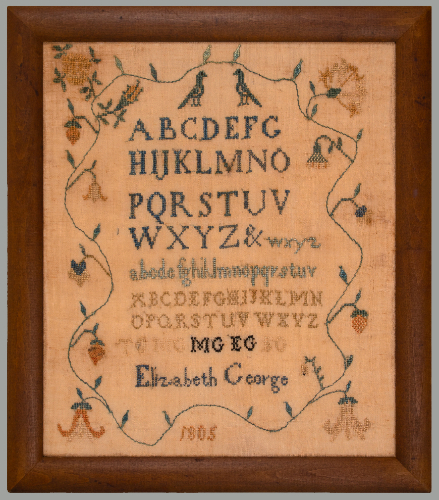 ABCDEFG
HIJKLMNO
PQRSTUV
WXYZ& wxyz
abcdefghiklmnopqrstuv
ABCDEFGHIJKLMN
OPQRSTUVWXYZ
MG EG
Elizabeth George
1805